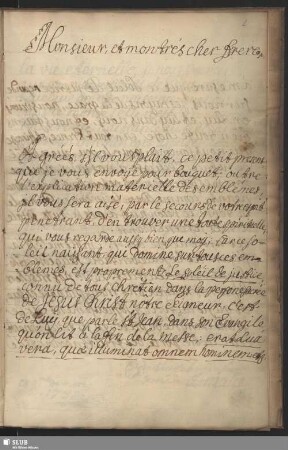 Monsieur et mon trés cher Frere,
Agreés s'il vous plait, ce petit
que je vous envoye pour bouquet, outre
l'explication materielle des emblémes,
il vous sera aisé, par le secours de votre esprit
penetrant, d'en trouver une toute spirituelle
que vous regarde aussi bien que moy, car ce so-
leil naissant, qui domine sur toutes ces em-
blémes, est proprement le soleil de justice
connu de tous chretien dans la personne
de Jesus Christ notre seigneur, c'est
de luy que parle St Jean, dans son Evangile
qu'on lit à la fin de la messe, erat lux
vera, quæ illuminat omnem hominem
SLUB